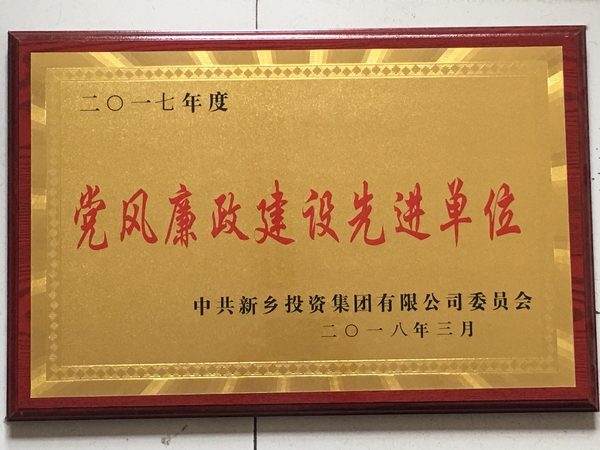 二〇一七年度
党风廉政建设先进单位
中共新乡投资集团有限公司委员会
二〇一八年三月